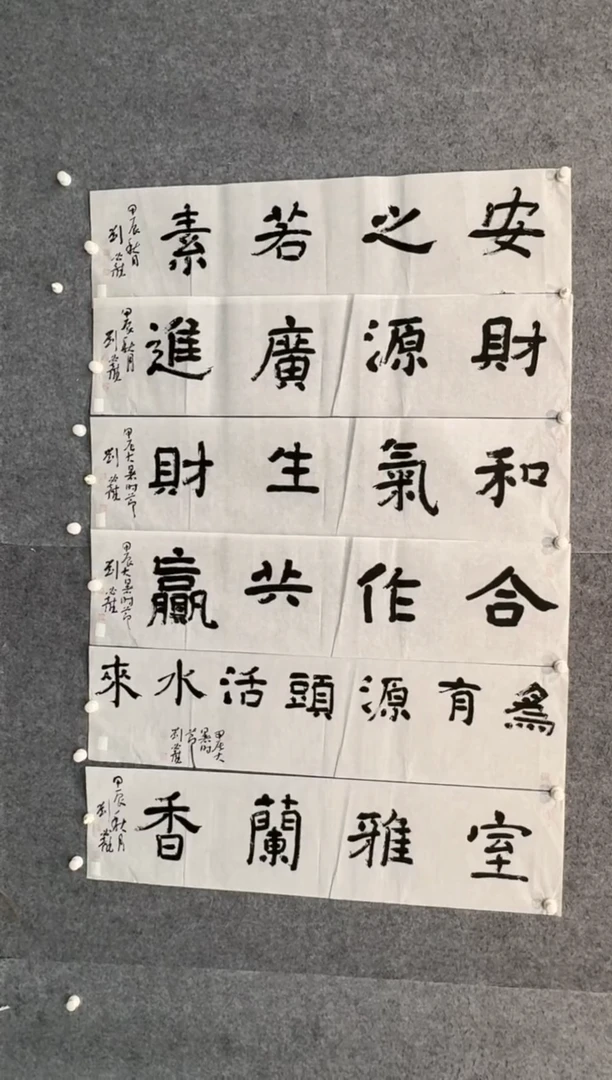 安之若素
甲辰秋月
財源廣進
甲辰秋月
和氣生財
甲辰大暑时节
合作共赢
甲辰大暑时节
為有源頭活水來
甲辰大暑时节
室雅蘭香
甲辰秋月